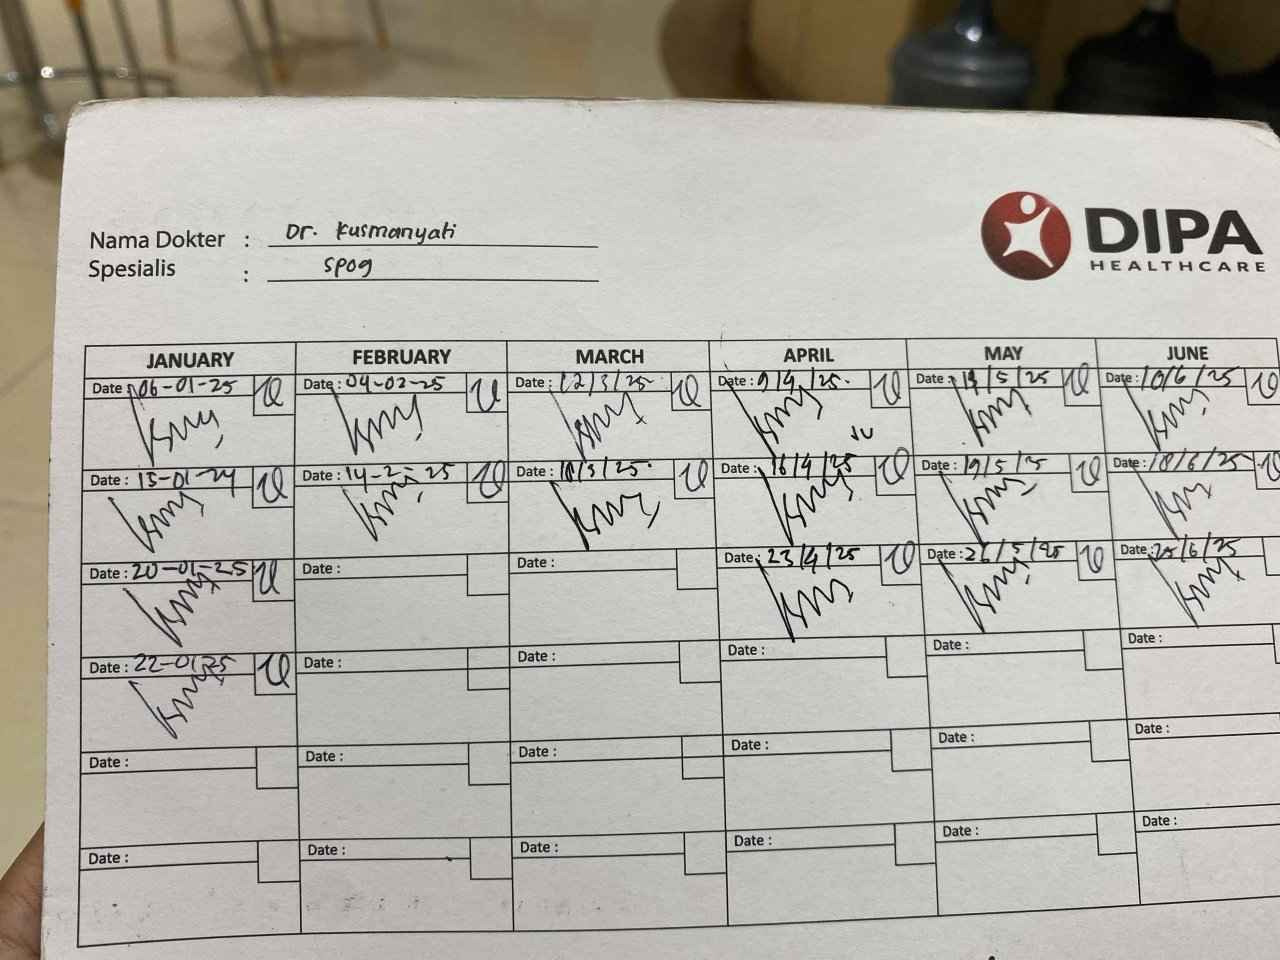 Nama Dokter : Dr. Kusmanyati
Spesialis : SPOG
DIPA
HEALTHCARE
JANUARY FEBRUARY MARCH APRIL MAY JUNE
Date : 06-01-25 Date : 04-02-25 Date : 12/3/25 Date : 9/4/25 Date : /5/25 Date : 10/6/25
Date : 15-01-24 Date : 14-2-25 Date : 18/3/25 Date : 16/4/25 Date : 19/5/25 Date : 18/6/25
Date : 20-01-25 Date : Date : Date : 23/4/25 Date : 26/5/25 Date : 25/6/25
Date : 22-01-25 Date : Date : Date : Date : Date :
Date : Date : Date : Date : Date : Date :
Date : Date : Date : Date : Date : Date :